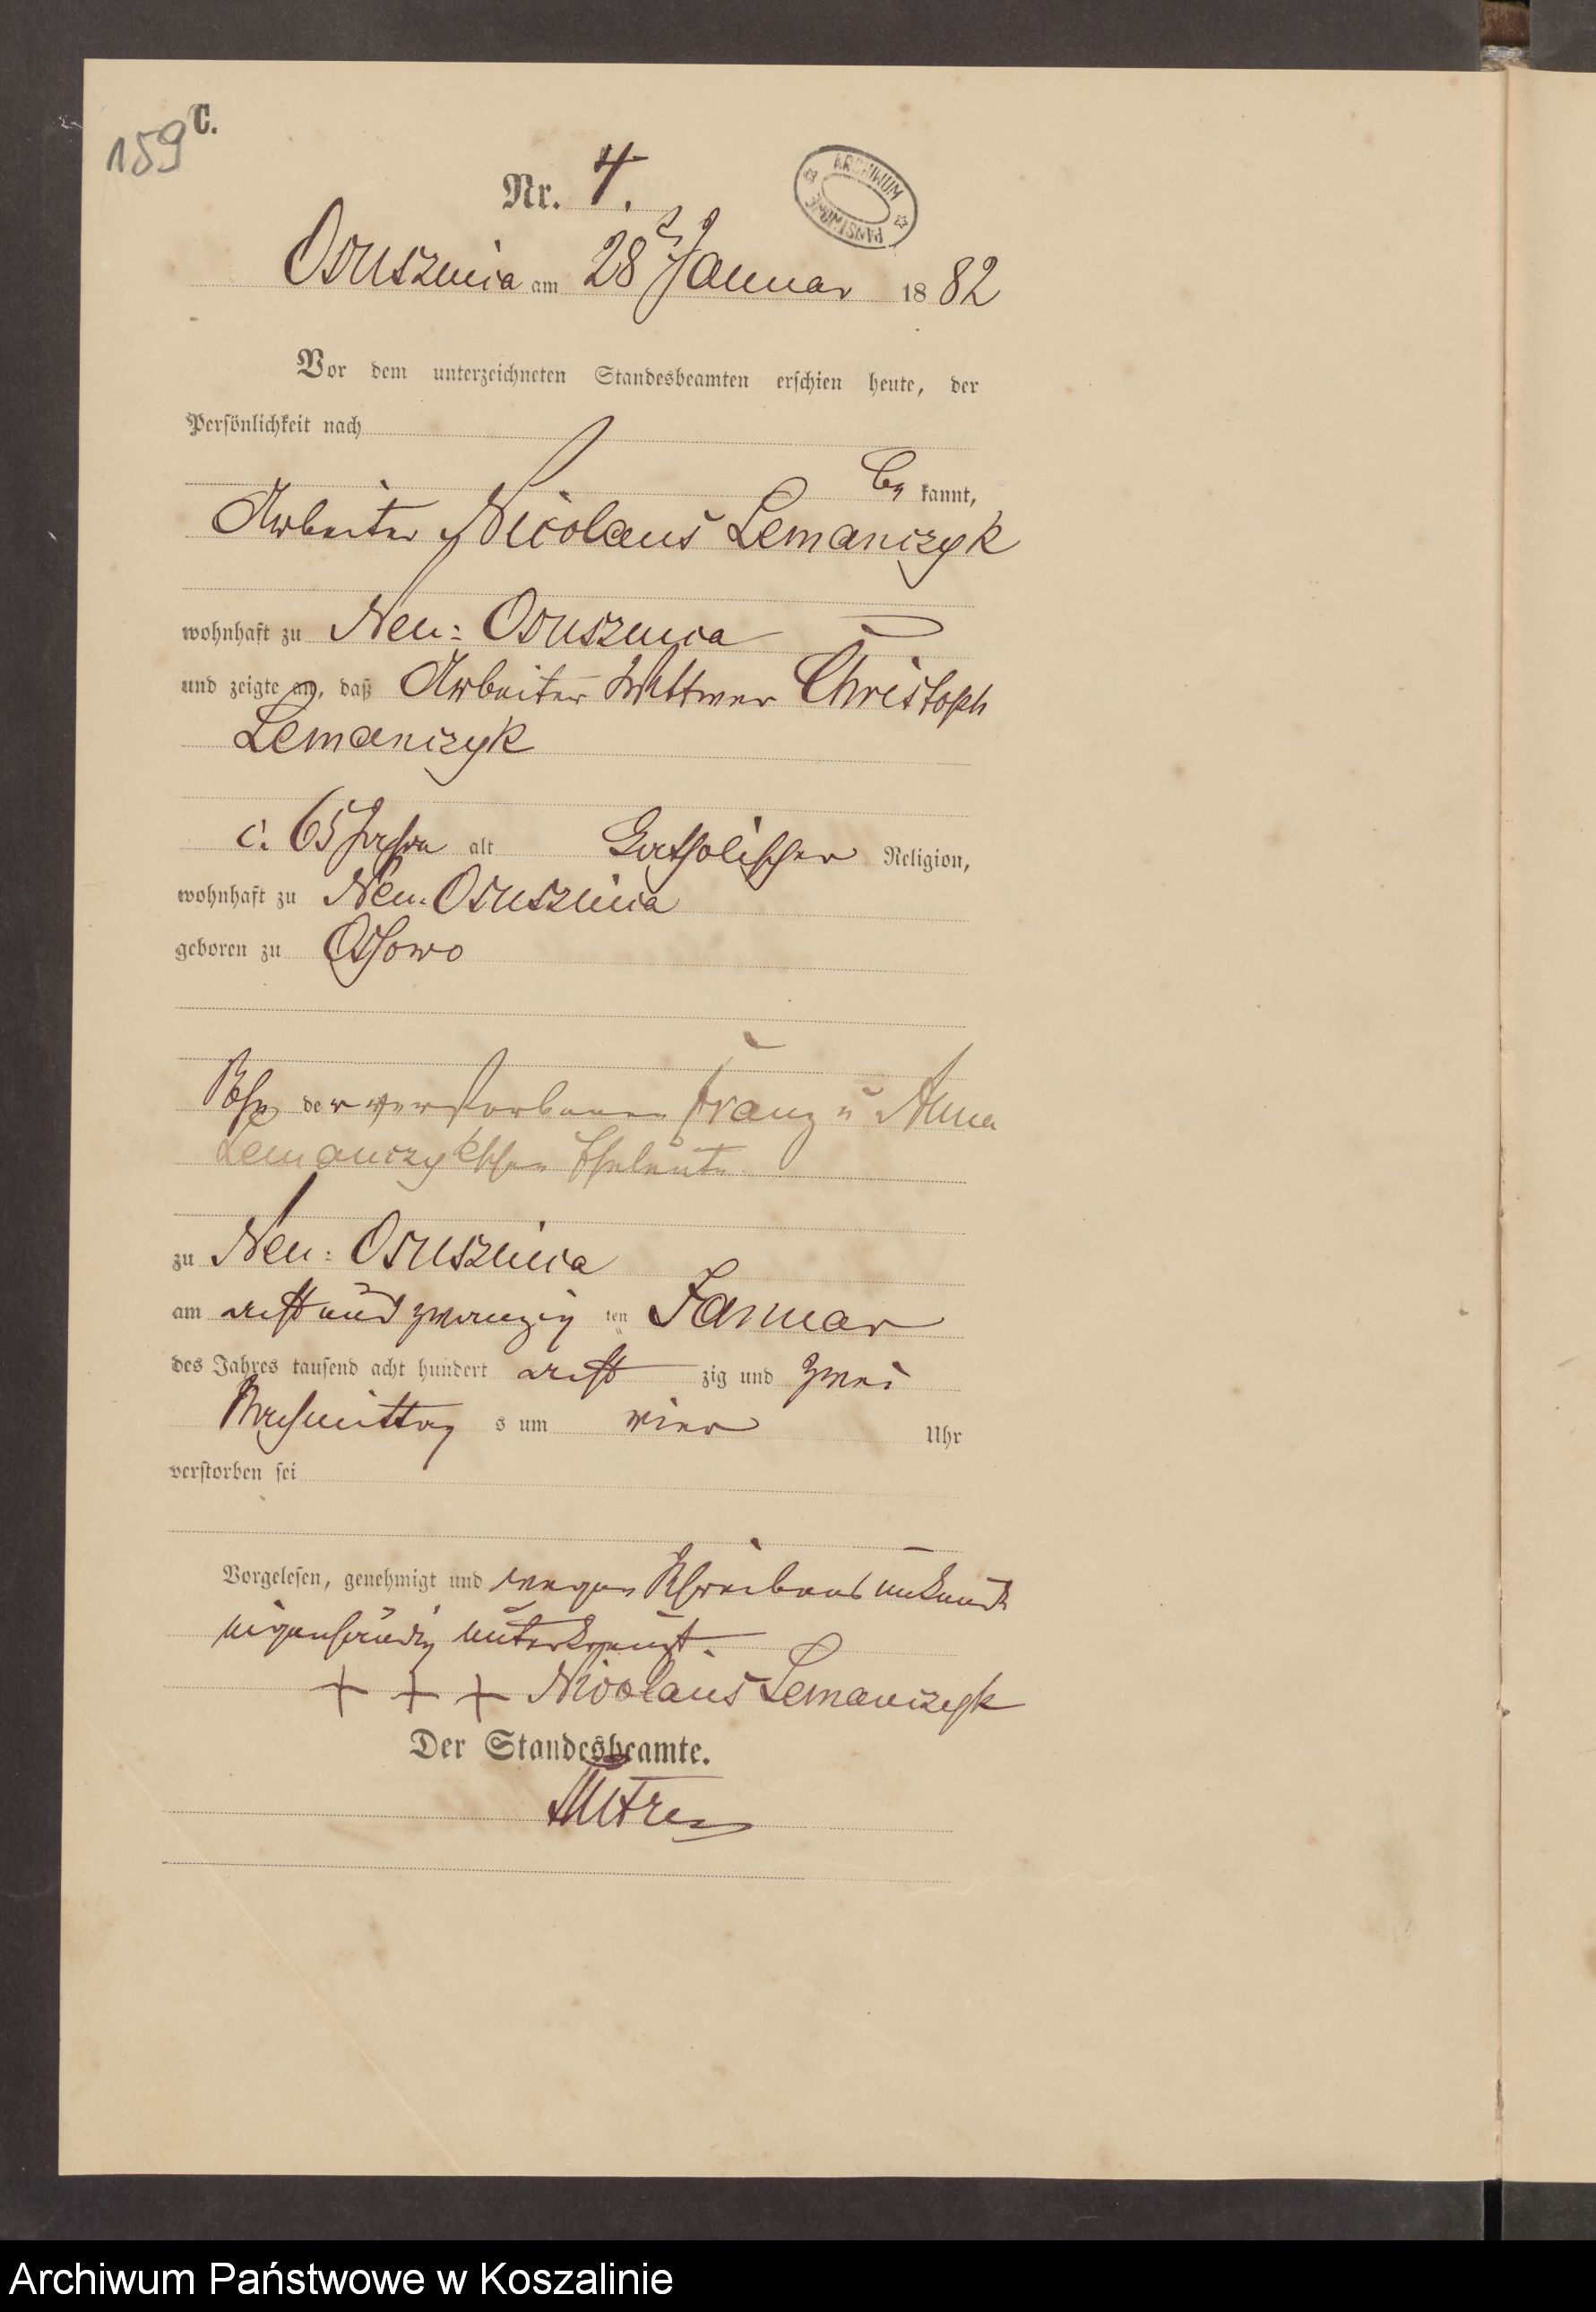 159
C.
Nr. 4.
ARCHIWUM PAŃSTWOWE
Osusznica am 28 Januar 1882
Vor dem unterzeichneten Standesbeamten erschien heute, der
Persönlichkeit nach
be kannt,
Arbeiter Nicolaus Lemanczyk
wohnhaft zu Neu: Osusznica
und zeigte an, daß Arbeiter Wittwer Christoph
Lemanczyk
c. 65 Jahre alt Catholischer Religion,
wohnhaft zu Neu-Osusznica
geboren zu Ossowo
Sohn der verstorbenen Franz u Anna
Lemanczykschen Eheleute.
zu Neu: Osusznica
am acht und zwanzig ten Januar
des Jahres tausend acht hundert acht zig und zwei
Nachmittag s um vier Uhr
verstorben sei
Vorgelesen, genehmigt und wegen Schreibens unkunde
eigenhändig unterkreuzt.
+ + + Nicolaus Lemanczyk
Der Standesbeamte.
Archiwum Państwowe w Koszalinie